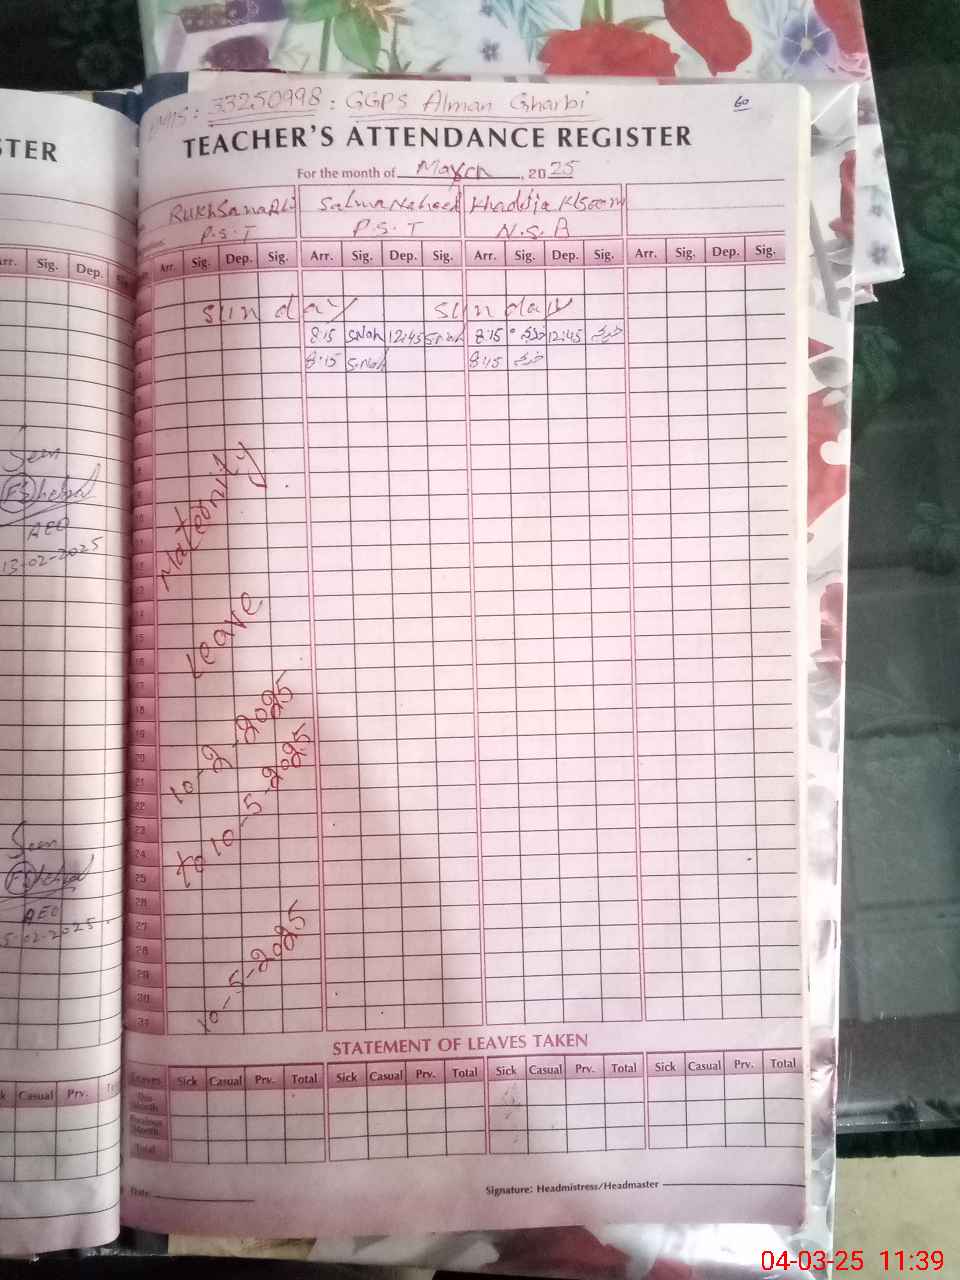 EMIS: 33250998: GGPS Alman Gharbi
60
TEACHER'S ATTENDANCE REGISTER
For the month of March, 2025
Salma Naheed Khadija
P.S.T P.S.T N.S.B
Arr. Sig. Dep. Sig. Arr. Sig. Dep. Sig. Arr. Sig. Dep. Sig. Arr. Sig. Dep. Sig.
Sunday Sunday
8:15 12:45 8:15 12:45
8:15 8:15
Maternity
Leave
10-2-2025
to 10-5-2025
10-5-2025
15
16
17
18
19
20
21
22
23
24
25
26
27
28
29
30
31
STATEMENT OF LEAVES TAKEN
Leaves Sick Casual Prv. Total Sick Casual Prv. Total Sick Casual Prv. Total Sick Casual Prv. Total
This Month
Previous Month
Total
Date: Signature: Headmistress/Headmaster
STER
Arr. Sig. Dep.
Seen
AEO
13-02-2025
Seen
AEO
5-02-2025
Casual Prv.
04-03-25 11:39